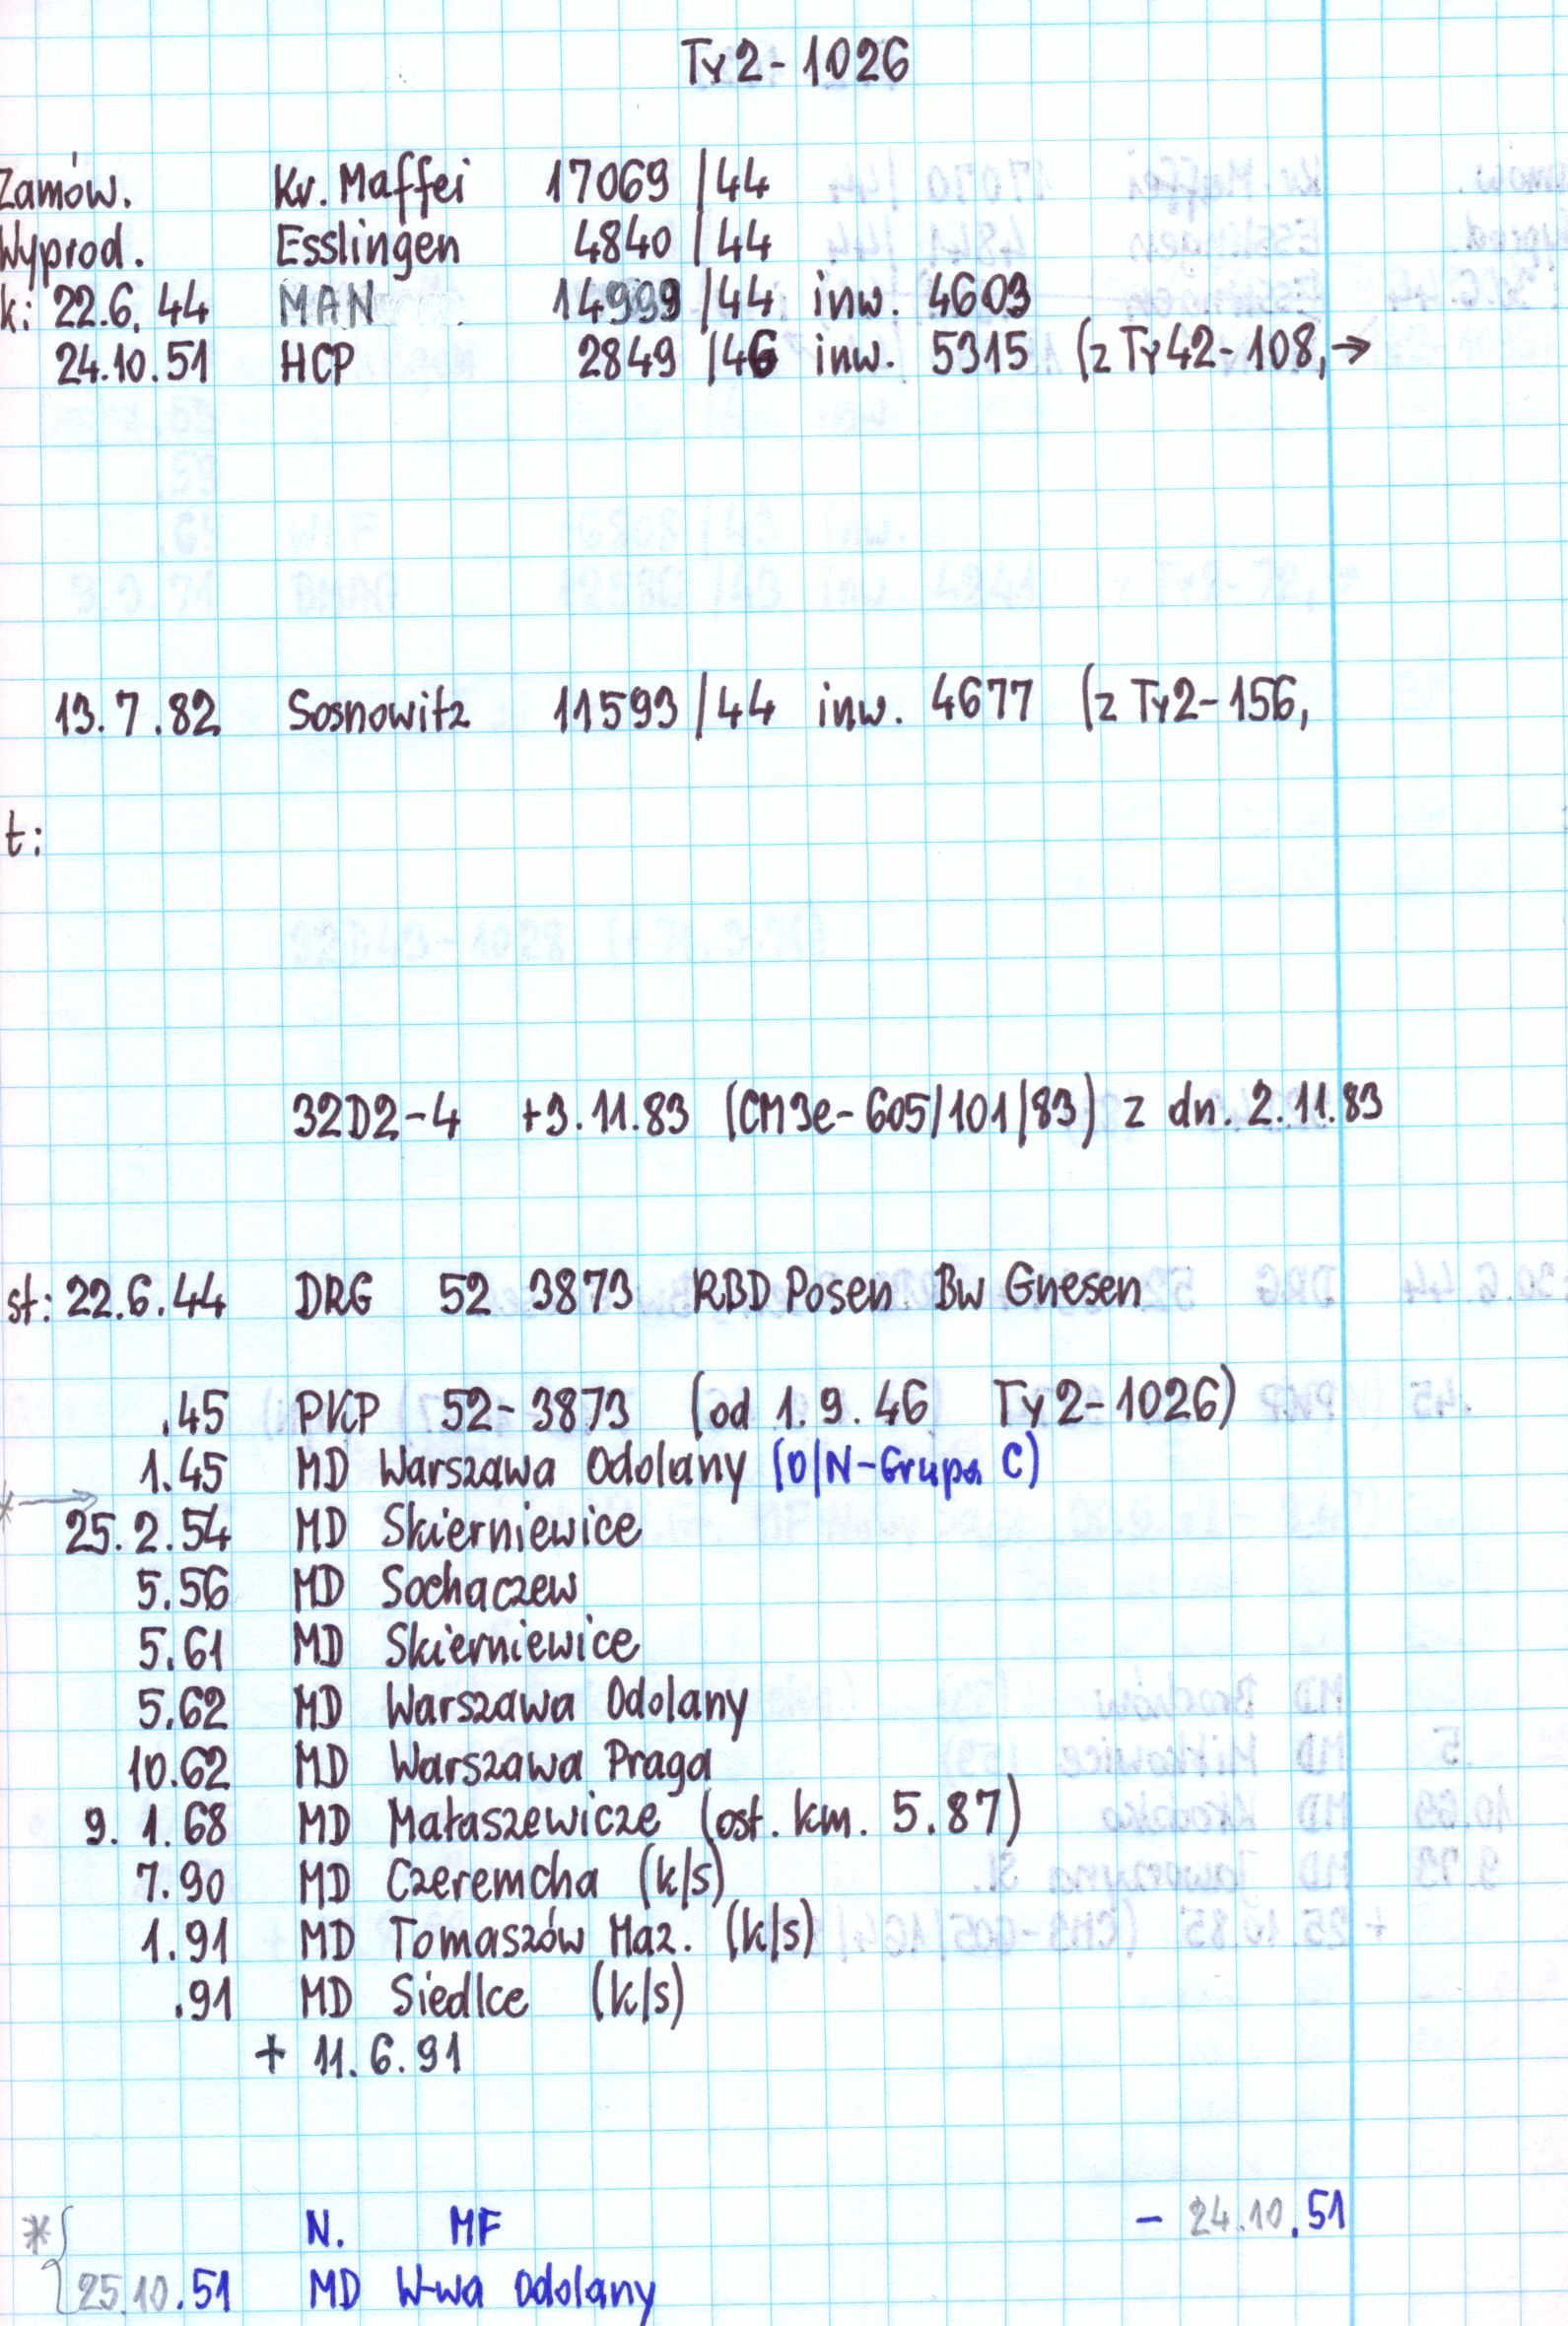 Ty2-1026
Zamów. Kr. Maffei 17069/44
Wyprod. Esslingen 4840/44
k: 22.6.44 MAN 14999/44 inw. 4603
24.10.51 HCP 2849/46 inw. 5315 (z Ty42-108,→
13.7.82 Sosnowitz 11593/44 inw. 4677 (z Ty2-156,
t:
32D2-4 +3.11.83 (CM3e-605/101/83) z dn. 2.11.83
st: 22.6.44 DRG 52 3873 RBD Posen Bw Gnesen
.45 PKP 52-3873 (od 1.9.46 Ty2-1026)
1.45 MD Warszawa Odolany (D/N-Grupa C)
*→
25.2.54 MD Skierniewice
5.56 MD Sochaczew
5.61 MD Skierniewice
5.62 MD Warszawa Odolany
10.62 MD Warszawa Praga
9.1.68 MD Małaszewicze (ost. km. 5.87)
7.90 MD Czeremcha (k/s)
1.91 MD Tomaszów Maz. (k/s)
.91 MD Siedlce (k/s)
+ 11.6.91
* N. MF - 24.10.51
25.10.51 MD W-wa Odolany